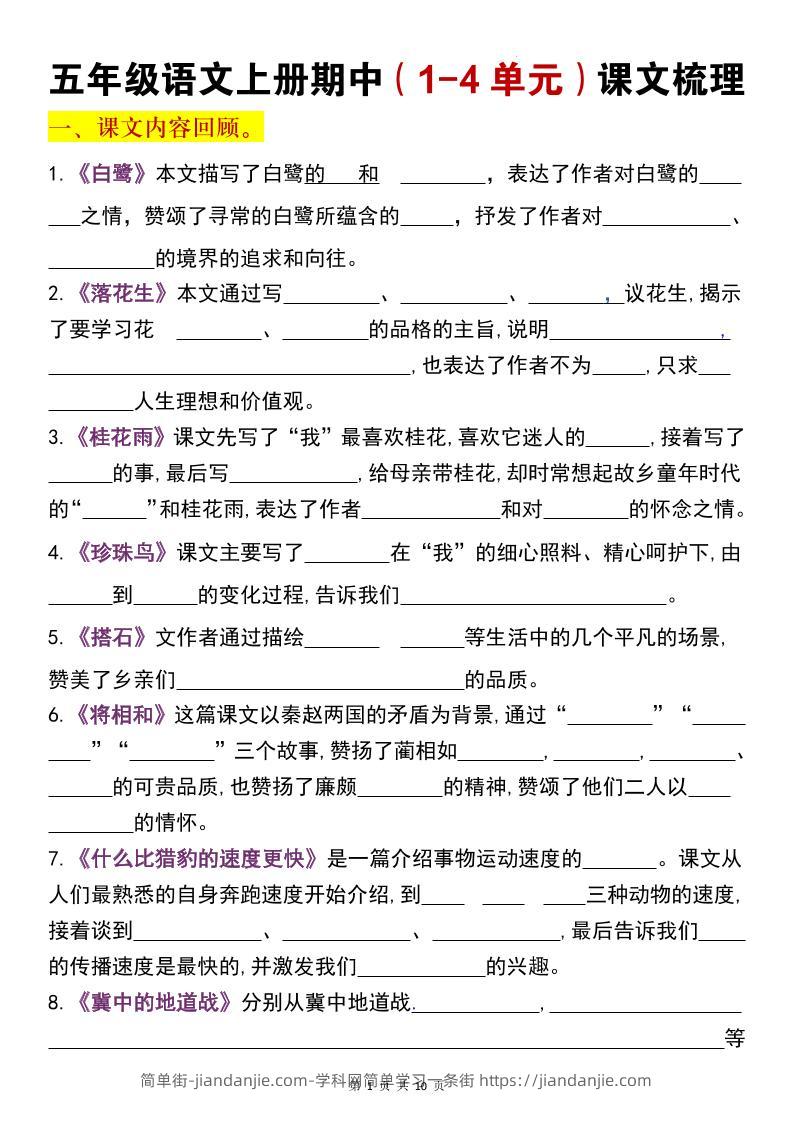 五年级语文上册期中（1-4 单元）课文梳理
一、课文内容回顾。
1.《白鹭》本文描写了白鹭的 和 ________，表达了作者对白鹭的____
___之情，赞颂了寻常的白鹭所蕴含的_____，抒发了作者对____________、
__________的境界的追求和向往。
2.《落花生》本文通过写_________、__________、_________，议花生,揭示
了要学习花 ________、________的品格的主旨,说明________________，
__________________________________,也表达了作者不为_____,只求___
________人生理想和价值观。
3.《桂花雨》课文先写了“我”最喜欢桂花,喜欢它迷人的______,接着写了
______的事,最后写____________,给母亲带桂花,却时常想起故乡童年时代
的“______”和桂花雨,表达了作者_____________和对________的怀念之情。
4.《珍珠鸟》课文主要写了________在“我”的细心照料、精心呵护下,由
______到______的变化过程,告诉我们_________________________。
5.《搭石》文作者通过描绘_______ ______等生活中的几个平凡的场景,
赞美了乡亲们___________________________的品质。
6.《将相和》这篇课文以秦赵两国的矛盾为背景,通过“________”“_____
____”“________”三个故事,赞扬了蔺相如________,________,________、
______的可贵品质,也赞扬了廉颇________的精神,赞颂了他们二人以____
________的情怀。
7.《什么比猎豹的速度更快》是一篇介绍事物运动速度的_______。课文从
人们最熟悉的自身奔跑速度开始介绍,到____ ____ ____三种动物的速度,
接着谈到____________、____________、____________,最后告诉我们____
的传播速度是最快的,并激发我们____________的兴趣。
8.《冀中的地道战》分别从冀中地道战.___________,__________________
________________________________________________________________等
简单街-jiandanjie.com-学科网简单学习一条街 https://jiandanjie.com
第 1 页 共 10 页